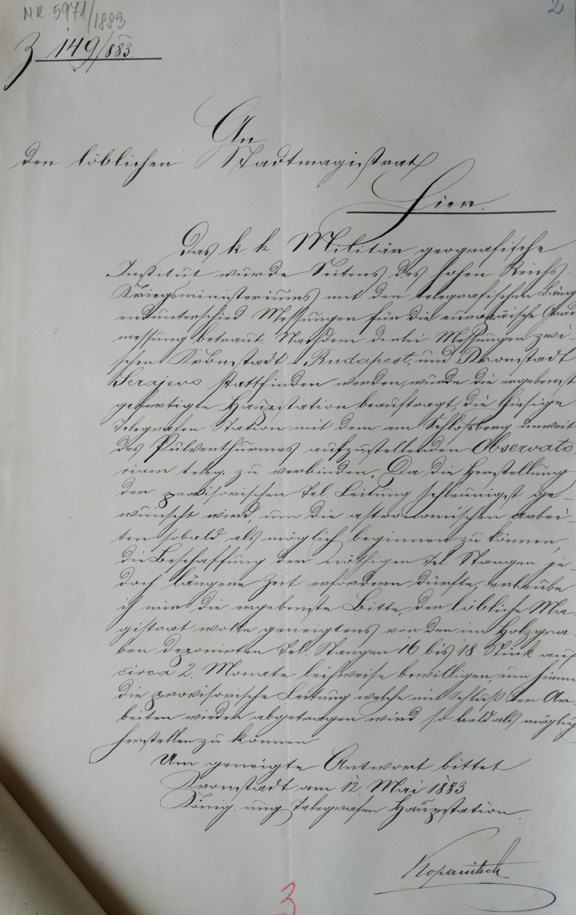 NR. 5971/1883
2
Z 149/883.
An
den löblichen Stadtmagistrat
Hier.
Das k. k. Militär geografische
Institut wurde Seitens des hohen Reichs-
Kriegsministeriums mit den telegrafischen Läng
enunterschied Messungen für die europäische Grad
messung betraut. Nachdem derlei Messungen zwi-
schen Kronstadt, Budapest, und Kronstadt
Serajevo stattfinden werden, wurde die ergebenst
gefertigte Hauptstation beauftragt, die hiesige
Telegrafen Station mit dem am Schlossberg unweit
des Pulverthurmes aufzustellenden Observato
rium teleg. zu verbinden. Da die Herstellung
der provisorischen Tel. Leitung schleunigst ge-
wünscht wird, um die astronomischen Arbei-
ten sobald als möglich beginnen zu können,
die Beschaffung der nöthigen Tel. Stangen je-
doch längere Zeit erfordern dürfte, erlaube
ich mir die ergebenste Bitte, der löbliche Ma-
gistrat wolle geneigtens von den im Holzgra
ben deponirten Tel. Stangen 16 bis 18 Stück auf
circa 2 Monate leihweise bewilligen um hiemi
die provisorische Leitung welche mit Schluß der Ar-
beiten wieder abgetragen wird so bald als möglich
herstellen zu können
Um geneigte Antwort bittet
Kronstadt am 12. Mai 1883
König. ung. Telegrafen Hauptstation.
Kopanitsch
3